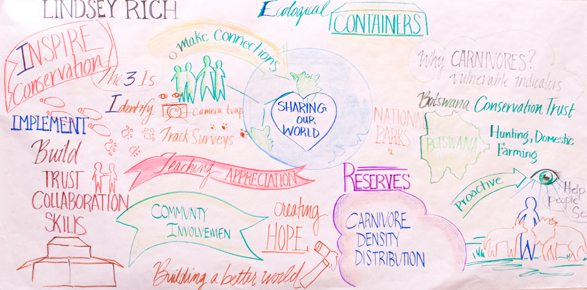 LINDSEY RICH
Ecological
CONTAINERS
INSPIRE
Conservation
Make Connections
The 3 Is
Identify
camera trap
Track Surveys
IMPLEMENT
Build
TRUST
COLLABORATION
SKILLS
SHARING
OUR
WORLD
NATIONAL
PARKS
Why CARNIVORES?
Vulnerable indicators
Botswana Conservation Trust
BOTSWANA
Hunting, Domestic
Farming
Teaching APPRECIATION
COMMUNITY
INVOLVEMEN
creating
HOPE
Building a better world
RESERVES
CARNIVORE
DENSITY
DISTRIBUTION
Proactive
Help
people
See